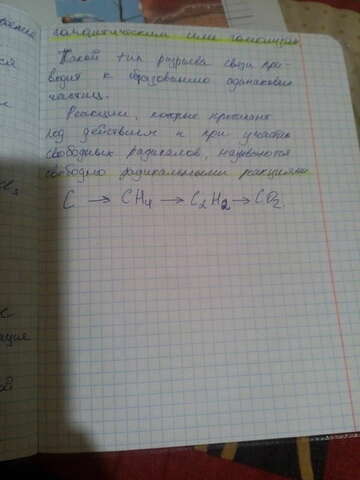 гомолитическим или гомолизом
Такой тип разрыва связи при-
водит к образованию одинаковых
частиц.
Реакции, которые протекают
под действием и при участии
свободных радикалов, называются
свободно радикальными реакциями
C → CH4 → C2H2 → CO2